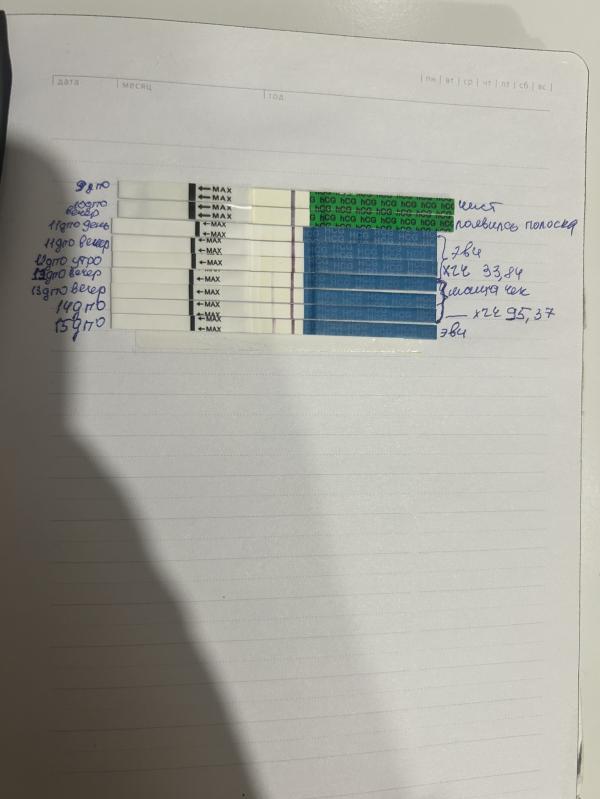 дата месяц год пн вт ср чт пт сб вс
9 дпо MAX hCG hCG hCG hCG hCG hCG hCG чист
10дпо вечер MAX hCG hCG hCG hCG hCG hCG hCG
11дпо день MAX появилась полоска
11дпо вечер MAX эви
12дпо утро MAX хгч 33,84
12дпо вечер MAX
13дпо вечер MAX чек
14дпо MAX хгч 95,37
15дпо MAX эви